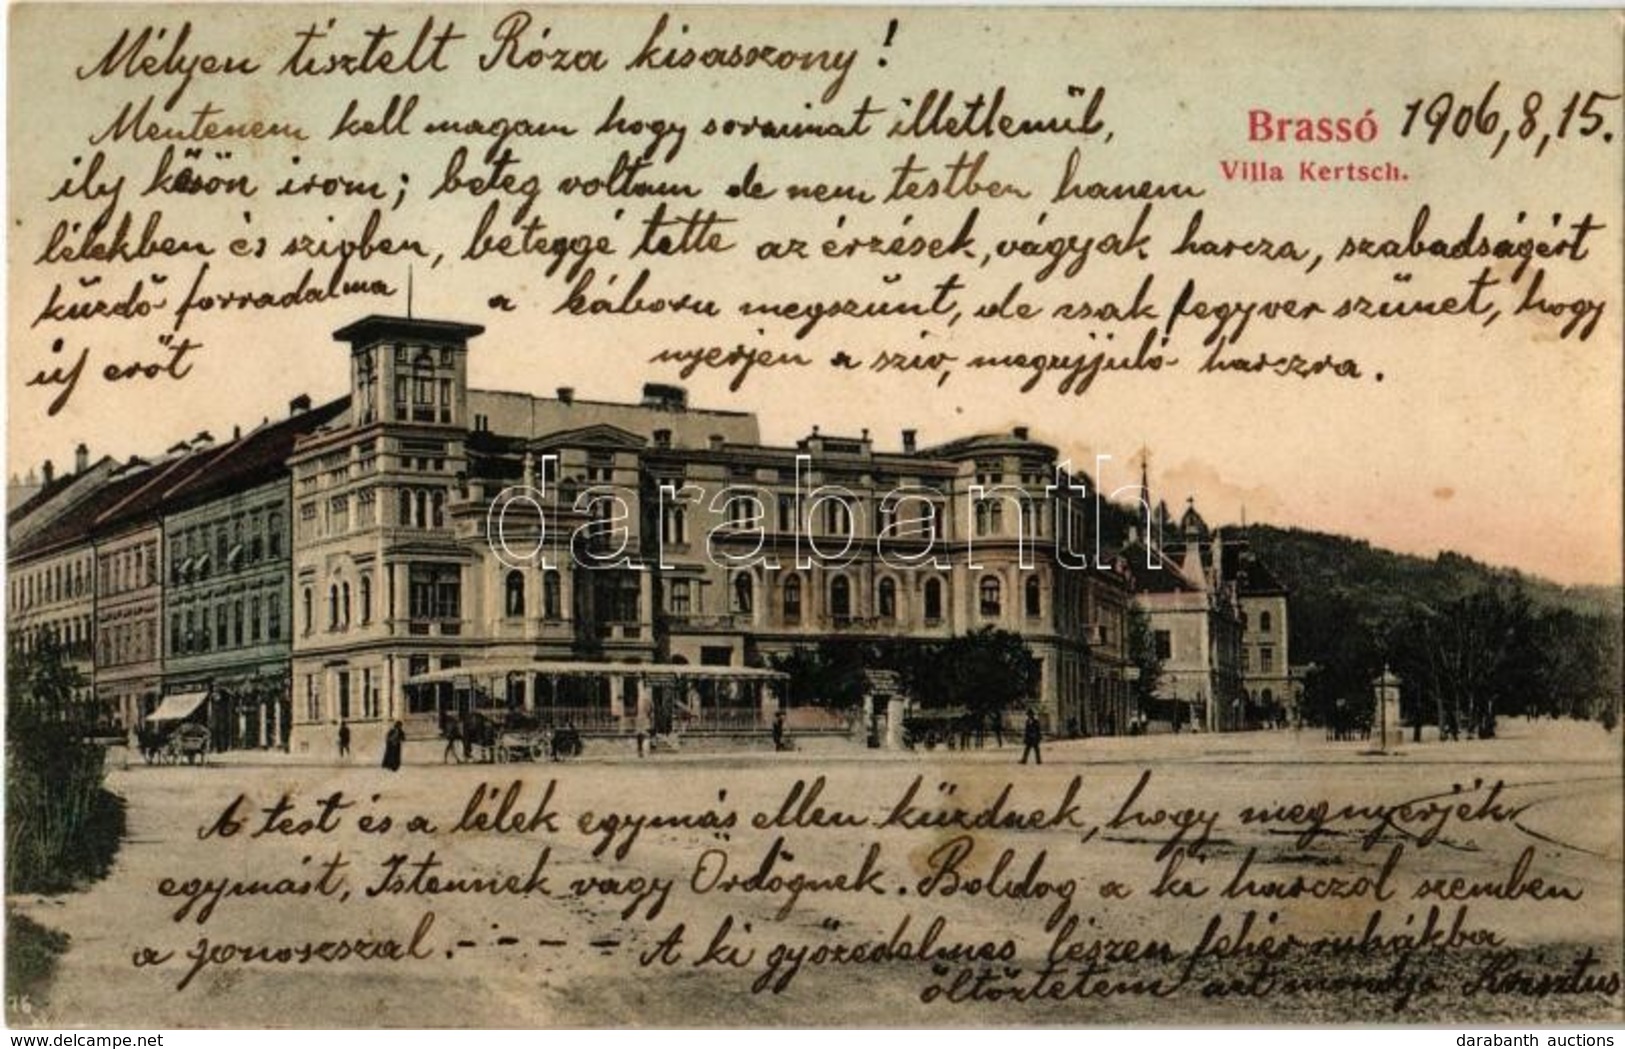 Mélyen tisztelt Róza kisasszony!
Mentenem kell magam hogy soraimat illetlenül,
Brassó 1906, 8, 15.
Villa Kertsch.
ily későn irom; beteg voltam de nem testben hanem
lélekben és szivben, beteggé tette az érzések, vágyak harcza, szabadságért
küzdő forradalma a háboru megszünt, de csak fegyver szünet, hogy
uj erőt nyerjen a sziv, megujjuló harczra.
darabanth
A test és a lélek egymás ellen küzdnek, hogy megnyerjék
egymást, Istennek vagy Ördögnek. Boldog a ki harczol szemben
a gonoszszal. - - - - - A ki győzedelmes lészen fehér ruhákba
öltöztetem azt mondja Krisztus
76
www.delcampe.net
darabanth auctions